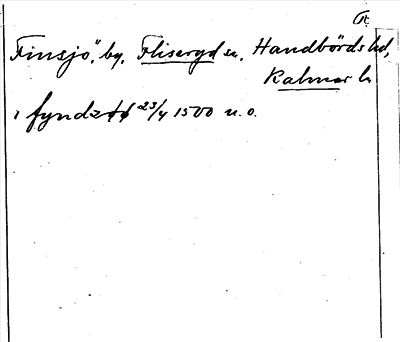 Finsjö, by, Fliseryd sn, Handbörds hd,
Kalmar l.
i fyndzø 23/4 1500 u. o.